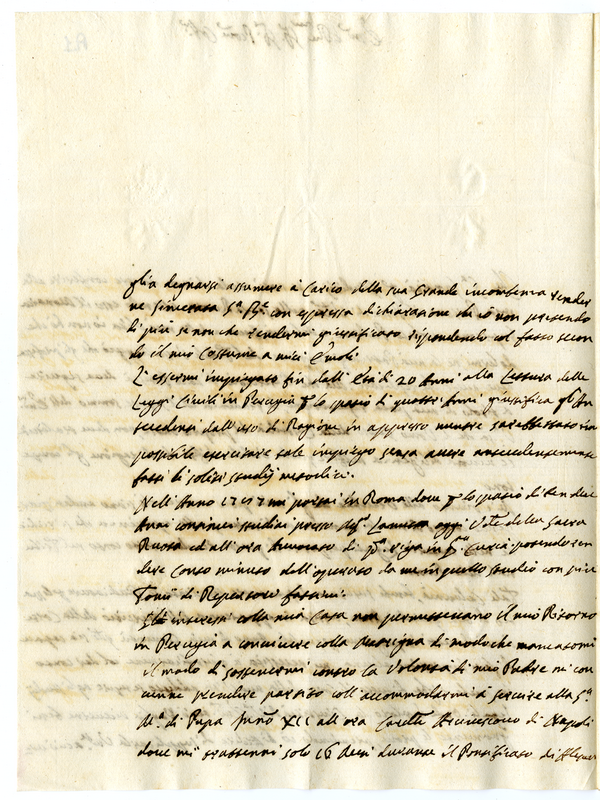 glia degnarsi assumere à Carico della sua Grande incombenza render
ne con espressa dichiarazione che io non pretendo
di più se non che rendermi giustificato rispondendo col fatto secon
do il mio Costume a miei Emoli
L'essermi impiegato fin dall'Età di 20 Anni alla Lettura delle
Leggi Civili in Perugia p lo spazio di quattro Anni giustifica gl'An
tecedenti dall'uso di Ragione in appresso mentre sarebbe stato im
possibile esercitare tale impiego senza avere antecedentemente
fatti li soliti studij metodici.
Nell'Anno mi portai in Roma dove p lo spazio di
Anni continui studiai presso oggi della Sacra
Ruota ed all'ora Avvocato di in Curia potendo ren
dere Conto minuto dell'operato da me in questo studio con più
Tomi di Repertori fattimi.
Gl'interessi della mia Casa non permettevano il mio Ritorno
in Perugia a convivere colla di modo che mancatomi
il modo di sostenermi contro la Volontà di mio Padre mi con
venne prendere partito coll'accommodarmi a servire alla
di Papa Inno XII all'ora Arcivescovo di Napoli
dove mi trattenni solo 16 Mesi durante il Pontificato di